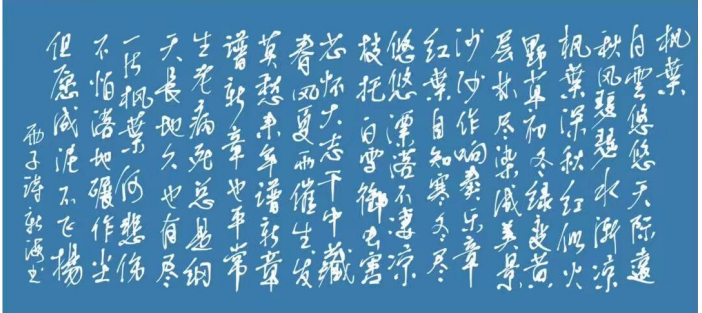 枫叶
白雲悠悠天际遠
秋风瑟瑟水渐凉
枫葉深秋红似火
野草初冬绿变黄
层林尽染成美景
沙沙作响奏乐章
红葉自知寒冬尽
悠悠漂落不凄凉
枝托白雪御虫害
芯怀大志干中藏
春风夏雨催生发
莫愁来年谱新章
谱新章也平常
生老病死总是纲
天長地久也有尽
一片枫葉何悲伤
不怕落地碾作尘
但愿成泥不飞揚
西子诗新海书